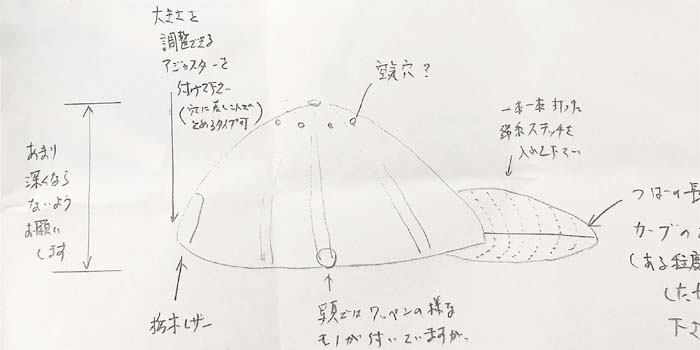 大きさを
調整できる
アジャスターを
付けて下さい
(穴に差しこんで
とめるタイプ可)
空気穴?
一本一本 打った
ステッチを
入れて下さい
あまり
深くなら
ないよう
お願い
します
つばの長
カーブの
(ある程度
した
下さ
栃木レザー
写真では ワッペンの様な
モノが付いていますが、